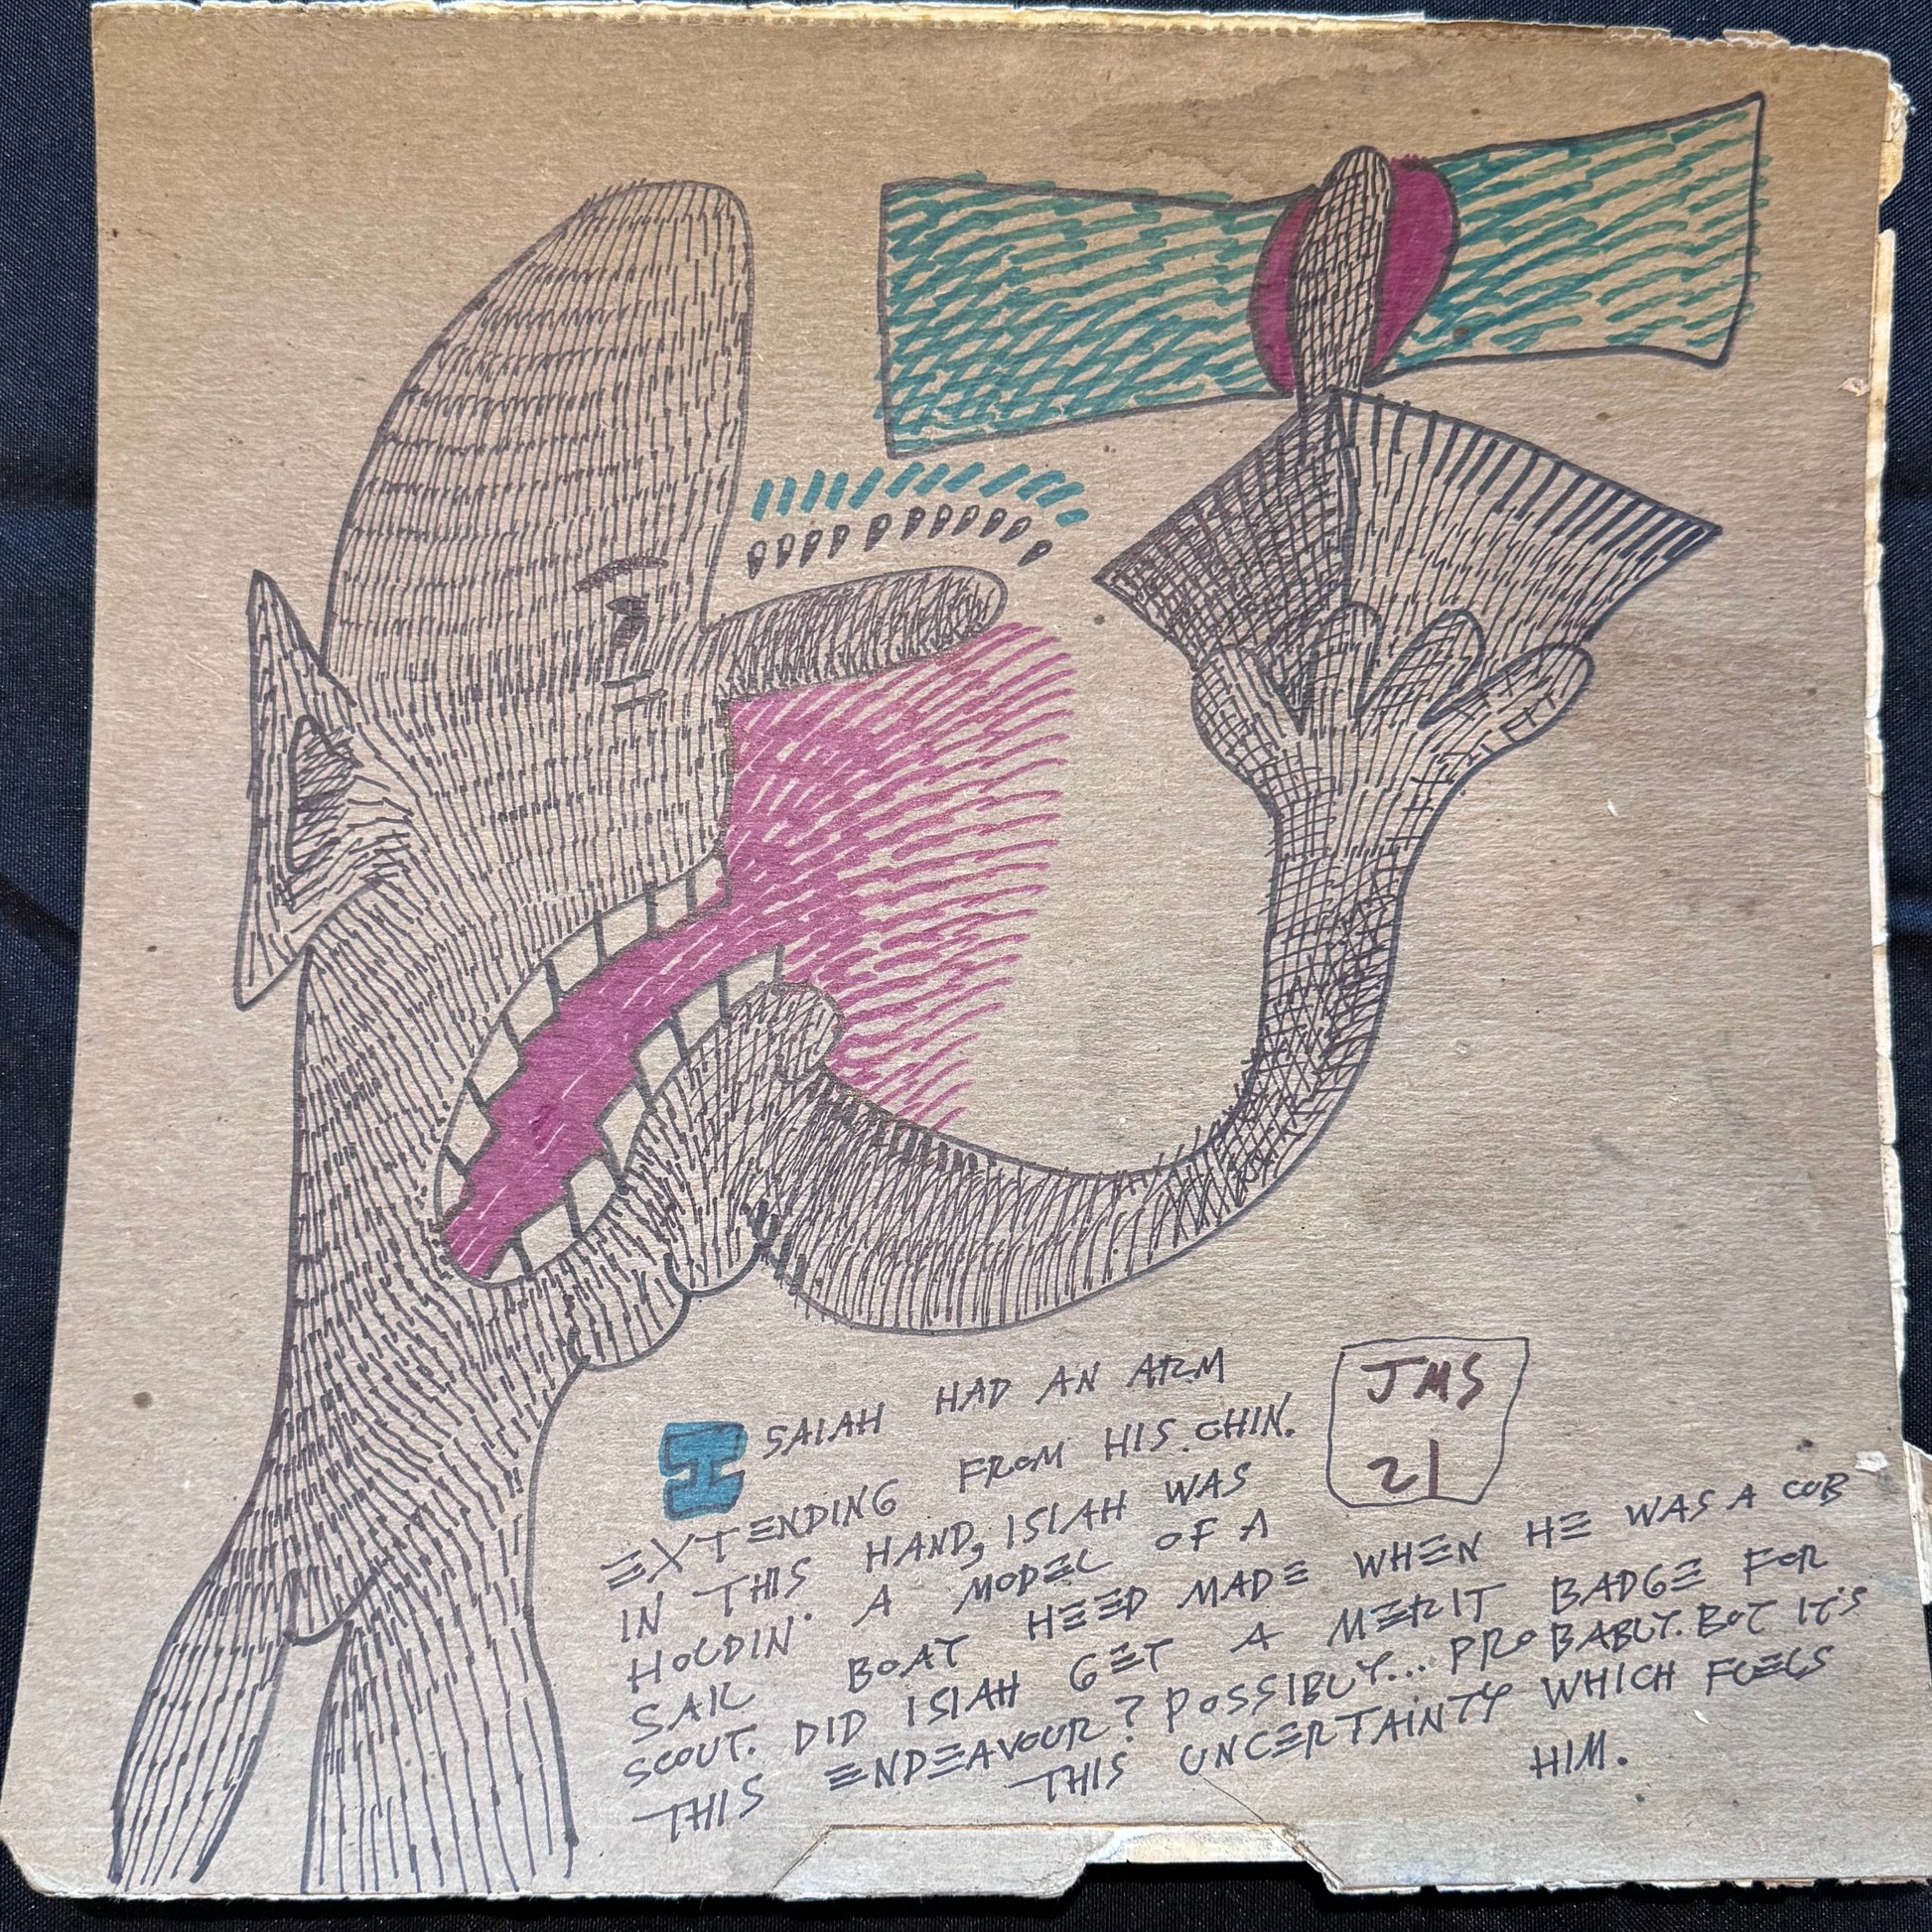 ISAIAH HAD AN ARM
EXTENDING FROM HIS CHIN.
IN THIS HAND, ISIAH WAS
HOLDIN' A MODEL OF A
SAIL BOAT HEED MADE WHEN HE WAS A CUB
SCOUT. DID ISIAH GET A MERIT BADGE FOR
THIS ENDEAVOUR? POSSIBLY... PROBABLY. BUT IT'S
THIS UNCERTAINTY WHICH FUELS
HIM.
JMS
21